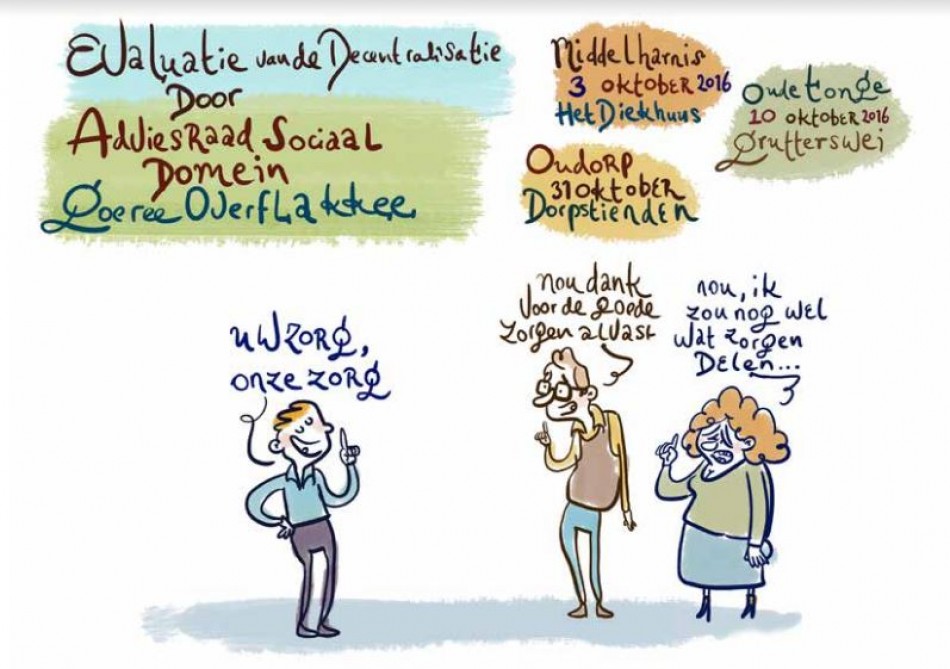 Evaluatie van de Decentralisatie
Door
Adviesraad Sociaal
Domein
Goeree Overflakkee
Middelharnis
3 oktober 2016
Het Diekhuus
Oude tonge
10 oktober 2016
Grutterswei
Oudorp
31 oktober
Dorpstienden
uw zorg,
onze zorg
nou dank
voor de goede
zorgen alvast
nou, ik
zou nog wel
wat zorgen
Delen...